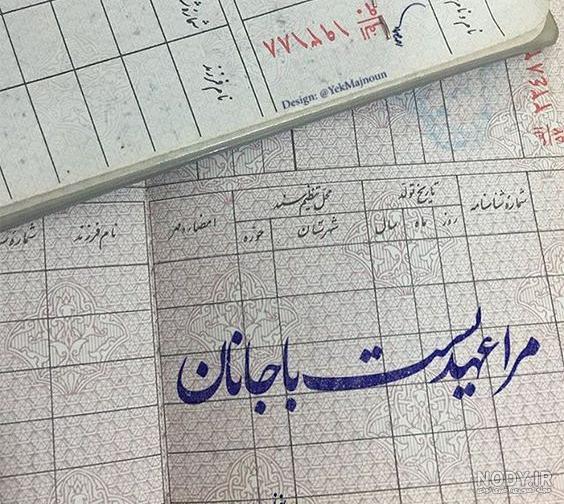 نام و نام
شماره ش
نام فرزند
۱۹۳۱۸۸
Design: @YekMajnoun
شماره شناسنامه
تاریخ تولد
روز
ماه
سال
محل تنظیم سند
شهرستان
حوزه
امضاء و مهر
نام فرزند
مرا عهدیست با جانان
NODY.IR